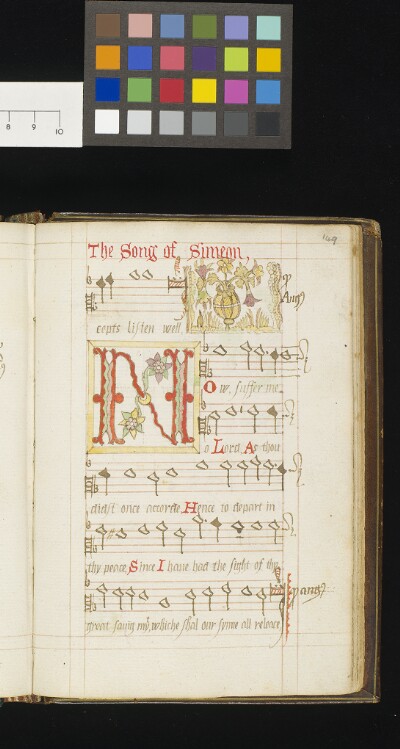 8 9 10
149
The Song of Simeon,
cepts listen well
N
Ow, suffer me
o Lord, As thou
didst once accorde, Hence to depart in
thy peace, Since I haue had the sight of thy
great sauig mỹ, whiche shal our synne all release